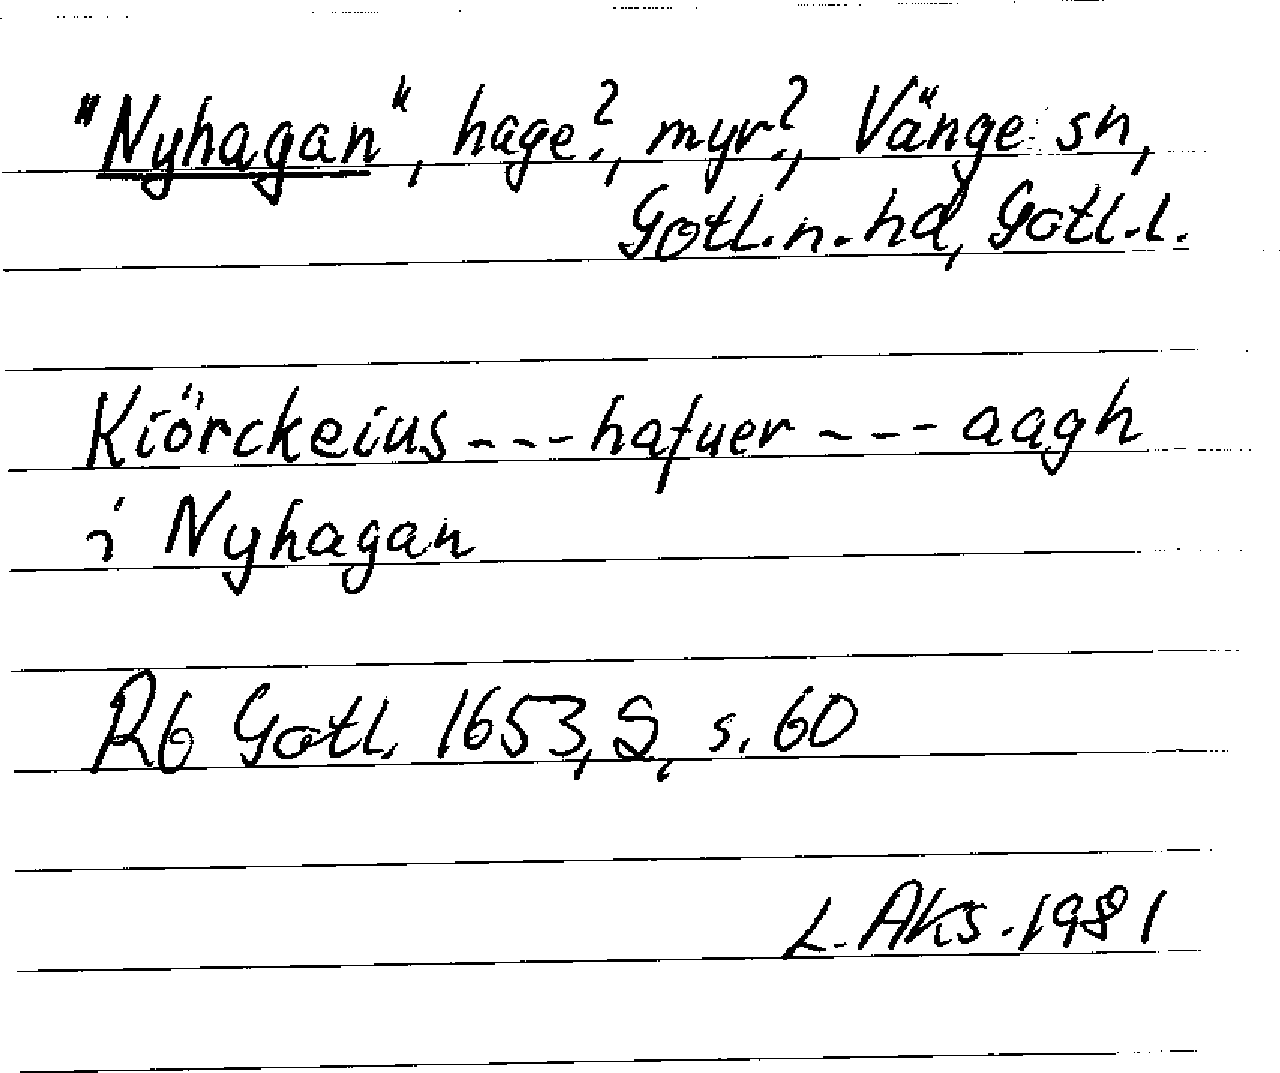 "Nyhagan", hage?, myr?, Vänge sn,
Gotl. n. hd, Gotl. l.
Kiörckeius --- hafuer --- aagh
i Nyhagan
Rb Gotl. 1653, S, s. 60
L. Aks. 1981